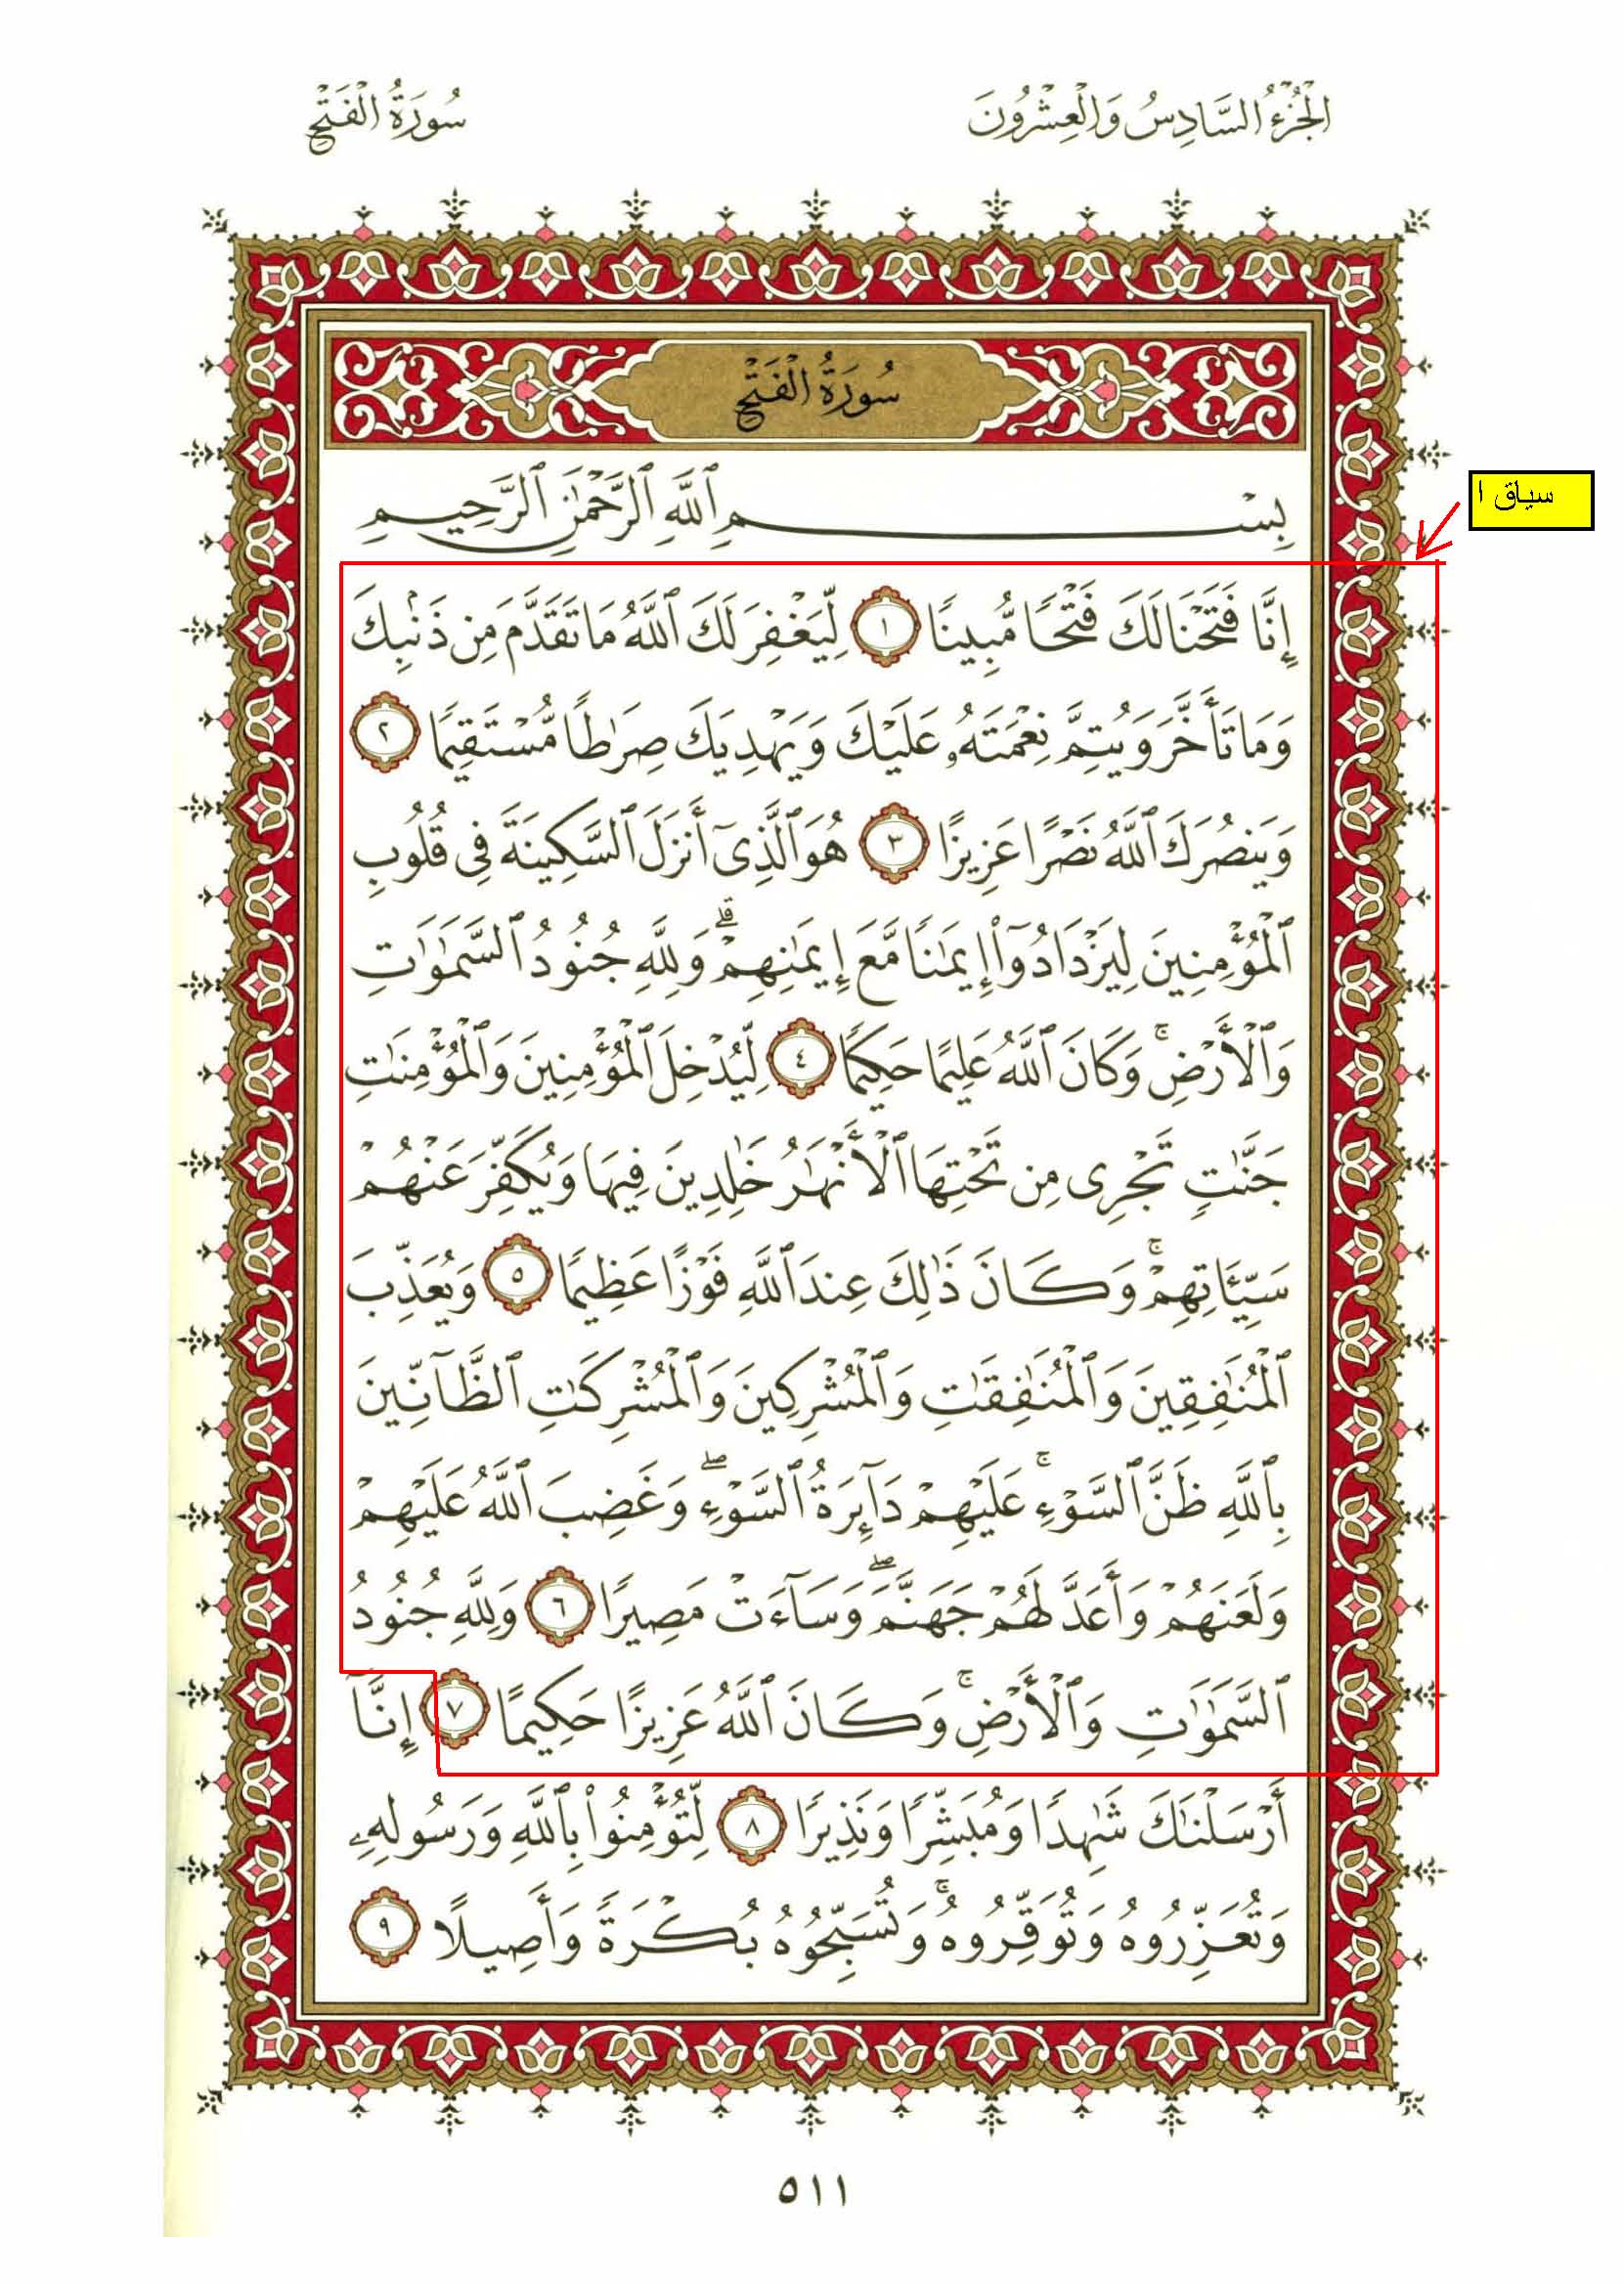 الْجُزْءُ السَّادِسُ وَالْعِشْرُونَ
سُورَةُ الْفَتْحِ
سُورَةُ الْفَتْحِ
بِسْمِ ٱللَّهِ ٱلرَّحْمَٰنِ ٱلرَّحِيمِ
سياق ١
إِنَّا فَتَحْنَا لَكَ فَتْحًا مُّبِينًا ١ لِّيَغْفِرَ لَكَ ٱللَّهُ مَا تَقَدَّمَ مِن ذَنۢبِكَ
وَمَا تَأَخَّرَ وَيُتِمَّ نِعْمَتَهُۥ عَلَيْكَ وَيَهْدِيَكَ صِرَٰطًا مُّسْتَقِيمًا ٢
وَيَنصُرَكَ ٱللَّهُ نَصْرًا عَزِيزًا ٣ هُوَ ٱلَّذِىٓ أَنزَلَ ٱلسَّكِينَةَ فِى قُلُوبِ
ٱلْمُؤْمِنِينَ لِيَزْدَادُوٓا۟ إِيمَٰنًا مَّعَ إِيمَٰنِهِمْ ۗ وَلِلَّهِ جُنُودُ ٱلسَّمَٰوَٰتِ
وَٱلْأَرْضِ ۚ وَكَانَ ٱللَّهُ عَلِيمًا حَكِيمًا ٤ لِّيُدْخِلَ ٱلْمُؤْمِنِينَ وَٱلْمُؤْمِنَٰتِ
جَنَّٰتٍ تَجْرِى مِن تَحْتِهَا ٱلْأَنْهَٰرُ خَٰلِدِينَ فِيهَا وَيُكَفِّرَ عَنْهُمْ
سَيِّـَٔاتِهِمْ ۚ وَكَانَ ذَٰلِكَ عِندَ ٱللَّهِ فَوْزًا عَظِيمًا ٥ وَيُعَذِّبَ
ٱلْمُنَٰفِقِينَ وَٱلْمُنَٰفِقَٰتِ وَٱلْمُشْرِكِينَ وَٱلْمُشْرِكَٰتِ ٱلظَّآنِّينَ
بِٱللَّهِ ظَنَّ ٱلسَّوْءِ ۚ عَلَيْهِمْ دَآئِرَةُ ٱلسَّوْءِ ۖ وَغَضِبَ ٱللَّهُ عَلَيْهِمْ
وَلَعَنَهُمْ وَأَعَدَّ لَهُمْ جَهَنَّمَ ۖ وَسَآءَتْ مَصِيرًا ٦ وَلِلَّهِ جُنُودُ
ٱلسَّمَٰوَٰتِ وَٱلْأَرْضِ ۚ وَكَانَ ٱللَّهُ عَزِيزًا حَكِيمًا ٧ إِنَّآ
أَرْسَلْنَٰكَ شَٰهِدًا وَمُبَشِّرًا وَنَذِيرًا ٨ لِّتُؤْمِنُوا۟ بِٱللَّهِ وَرَسُولِهِۦ
وَتُعَزِّرُوهُ وَتُوَقِّرُوهُ ۚ وَتُسَبِّحُوهُ بُكْرَةً وَأَصِيلًا ٩
٥١١